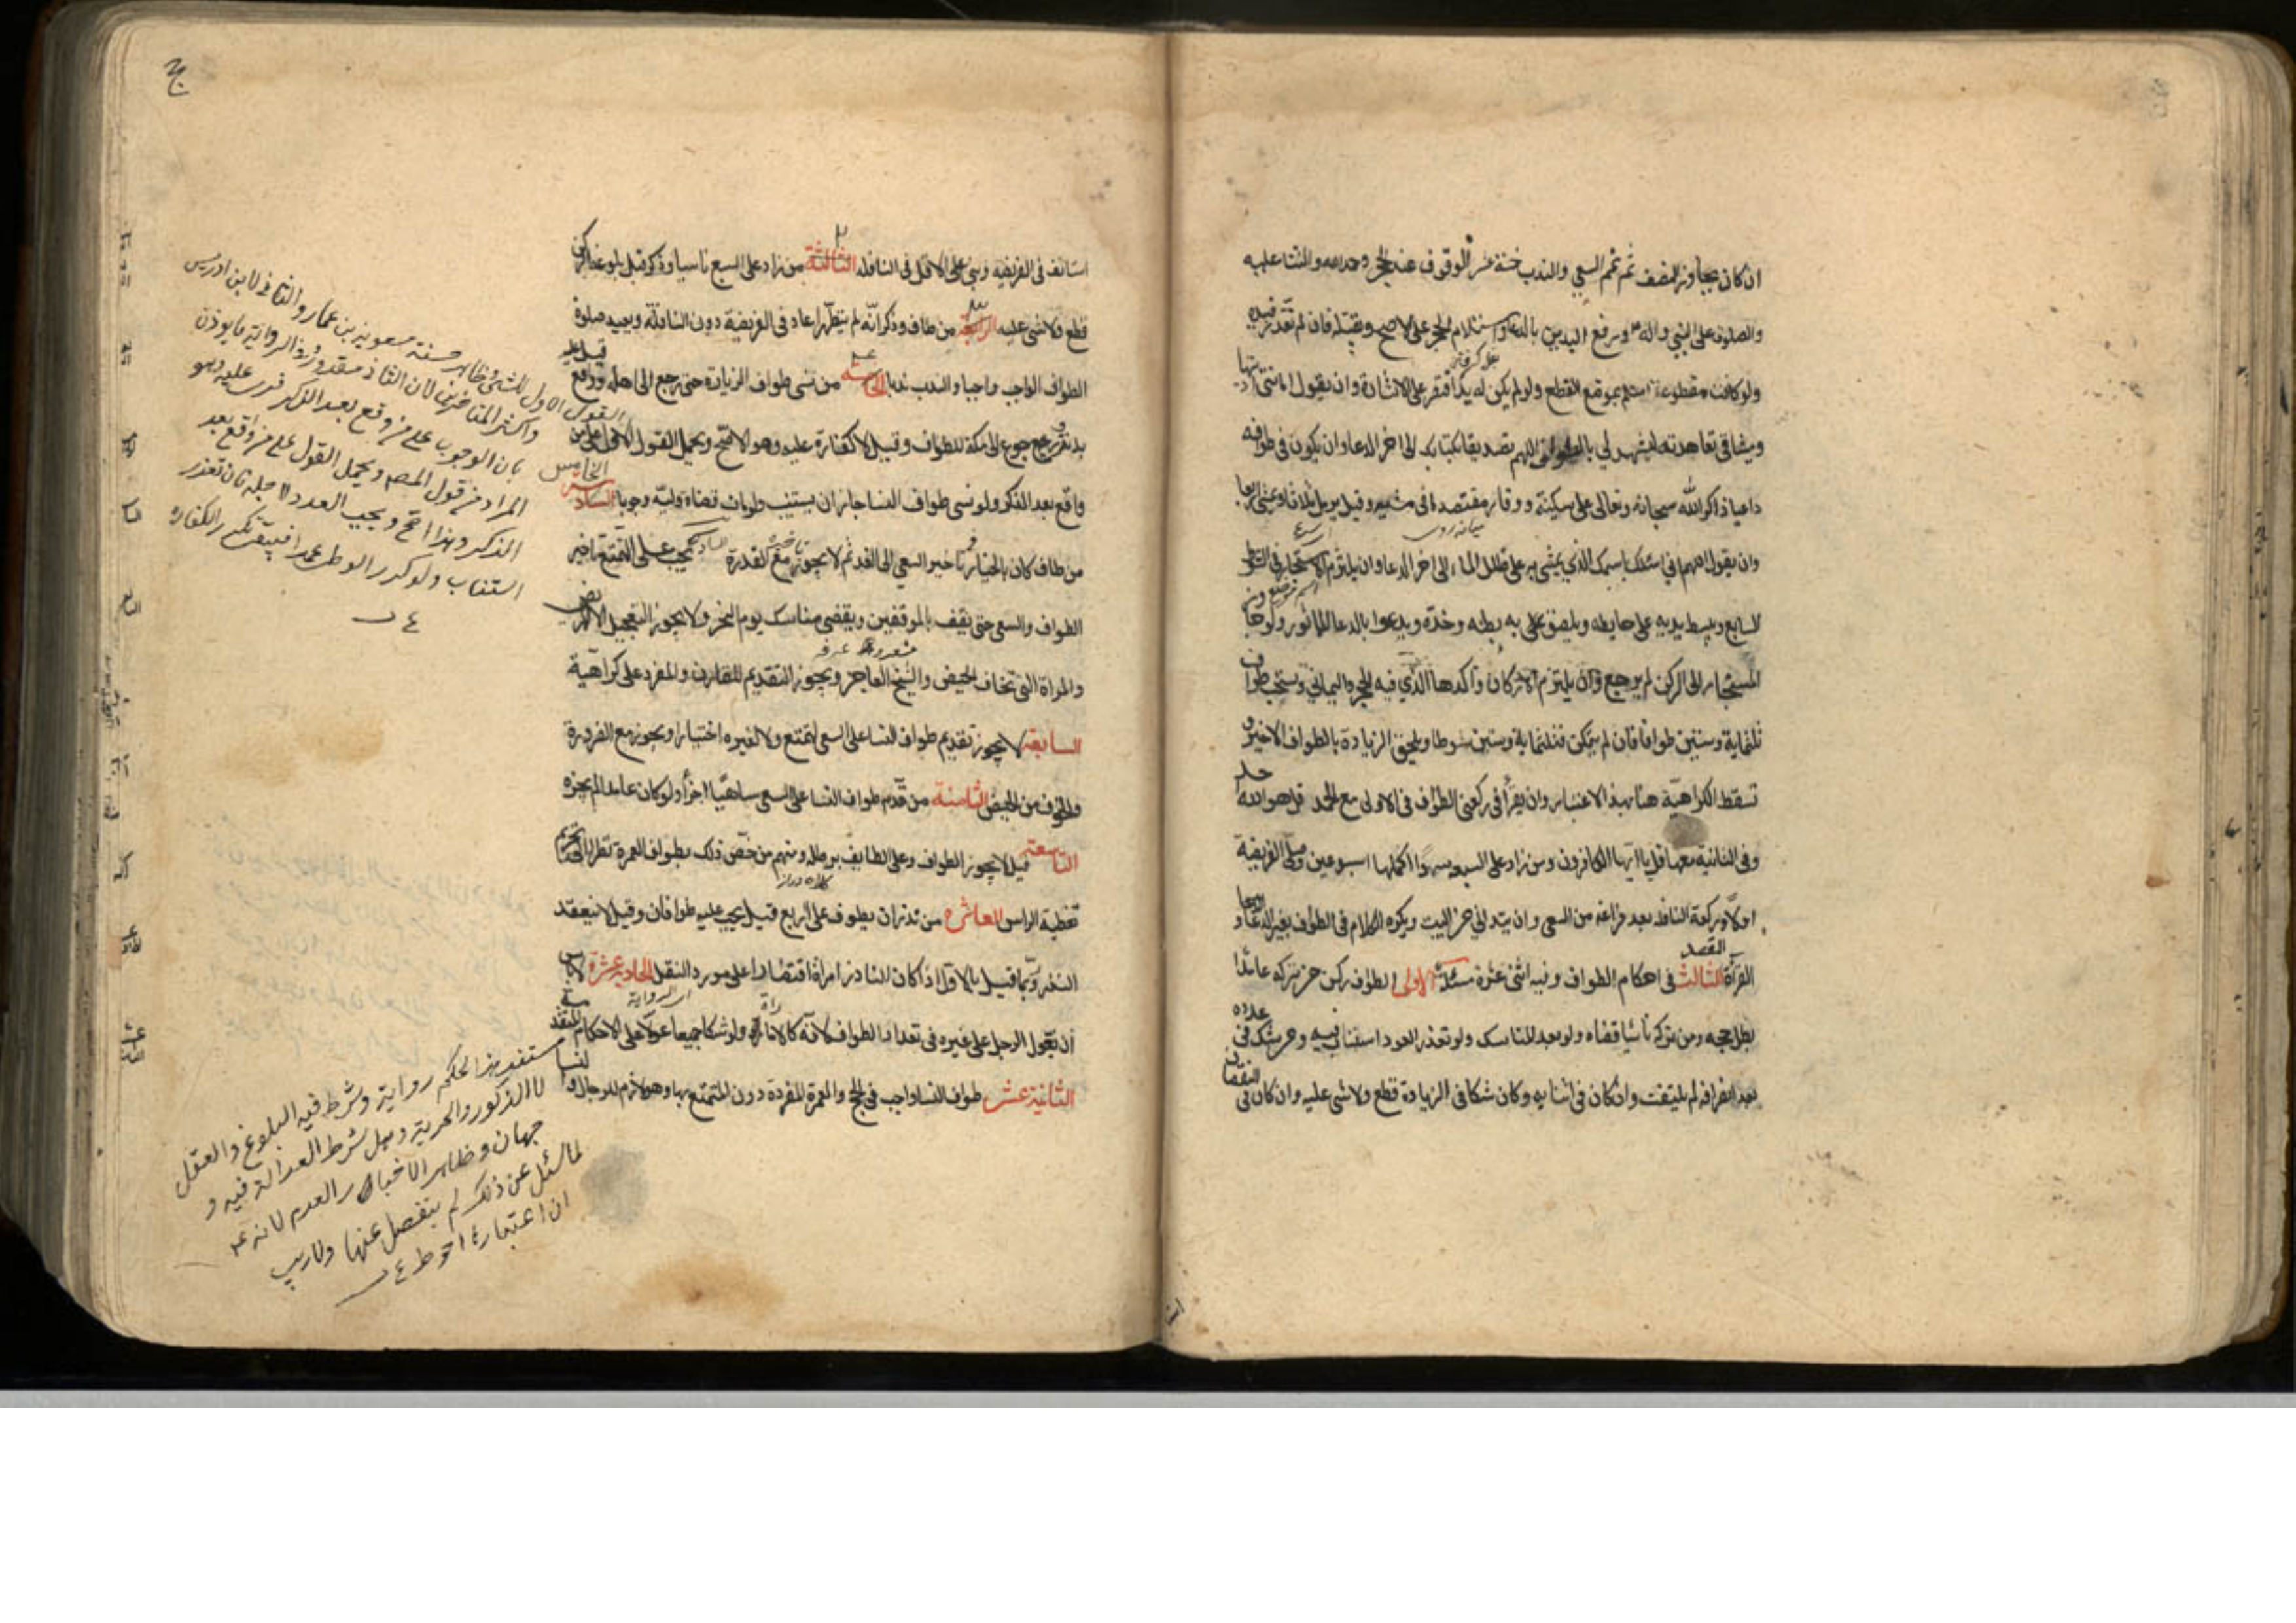 ان كان يجاوز النصف ثم تمم السعي والندب خمسة عشر الوقوف عند الحجر وحمد الله والثناء عليه
والصلوة على النبي واله ورفع اليدين بالدعاء واستلام الحجر على الاصح وتقبيله فان لم تقدر فبيده
ولو كانت مقطوعة استلم بموضع القطع ولو لم يكن له يد اقتصر على الاشارة وان يقول امانتى اديتها
وميثاقى تعاهدته ليشهد لي بالموافاة اللهم تصديقا بكتابك الى اخر الدعا وان يكون فى طوافه
داعيا ذاكرا لله سبحانه وتعالى على سكينة ووقار مقتصدا فى مشيه وقيل يرمل ثلاثا ويمشى اربعا
وان يقول اللهم انى اسئلك باسمك الذي يمشى به على طلل الماء الى اخر الدعا وان يلتزم المستجار فى الشوط
السابع ويبسط يديه على حايطه ويلصق به بطنه وخده ويدعوا بالدعا الماثور ولو جاز
المستجار الى الركن لم يرجع وان يلتزم الاركان واكدها الذي فيه الحجر واليماني ويستحب طواف
ثلثماية وستين طوافا فان لم يتمكن فثلثماية وستين شوطا ويلحق الزيادة بالطواف الاخير و
تسقط الكراهية هنا بهذا الاعتبار وان يقرأ فى ركعتى الطواف فى الاولى مع الحمد قل هو الله احد
وفى الثانية معها قل يا ايها الكافرون ومن زاد على السبعة سهوا اكملها اسبوعين وصلى الفريضة
اولا وركعة النافلة بعد فراغه من السعى وان يتدانى من البيت ويكره الكلام فى الطواف بغير الدعا و
القرآة الثالث فى احكام الطواف وفيه اثنى عشرة مسئلة الاولى الطواف ركن من تركه عامدا
بطل حجه ومن تركه ناسيا قضاه ولو بعد المناسك ولو تعذر العود استناب فيه ومن شك فى عدده
بعد انصرافه لم يلتفت وان كان فى اثنايه وكان شكا فى الزيادة قطع ولا شى عليه وان كان فى النقصان
استانف فى الفريضة وبنى على الاقل فى النافله الثالثة من زاد على السبع ناسيا وذكر قبل بلوغه الركن
قطع ولا شى عليه الرابعة من طاف وذكر انه لم يتطهر اعاد فى الفريضة دون النافلة ويعيد صلوة
الطواف الواجب واجبا والندب ندبا الخامسة من نسى طواف الزيارة حتى رجع الى اهله وواقع قيل عليه
بدنة والرجوع الى مكة للطواف وقيل لا كفارة عليه وهو الاصح ويحمل القول الاول على من
واقع بعد الذكر ولو نسى طواف النسا جاز ان يستنيب ولو مات قضاه وليه وجوبا السادسة
من طاف كان بالخيار فى تاخير السعي الى الغد ثم لا يجوز مع القدرة يجب على المتمتع تاخير
الطواف والسعى حتى يقف بالموقفين ويقضى مناسك يوم النحر ولا يجوز التعجيل الا للمريض
والمراة التى تخاف الحيض والشيخ العاجز ويجوز التقديم للقارن والمفرد على كراهية
السابعة لا يجوز تقديم طواف النسا على السعى لمتمتع ولا لغيره اختيارا ويجوز مع الضرورة
والخوف من الحيض الثامنة من قدم طواف النسا على السعى ساهيا اجزأ ولو كان عامدا لم يجزه
التاسعة قيل لا يجوز الطواف وعلى الطايف برطلة ومنهم من خص ذلك بطواف العمرة نظرا الى تحريم
تغطية الراس العاشره من نذر ان يطوف على اربع قيل يجب عليه طوافان وقيل لا ينعقد
النذر وربما قيل بالاول اذا كان الناذر امراة اقتصارا على مورد النقل الحادية عشرة لا باس
ان يعول الرجل على غيره فى تعداد الطواف لانه كالامارة ولو شكا جميعا عولا على الاحكام المتقدمة
الثانية عشر طواف النسا واجب فى الحج والعمرة المفردة دون المتمتع بها وهو لازم للرجال والنسا
القول الاول للشيخ وظاهر حسنة معوية بن عمار والثانى لابن ادريس
واكثر المتاخرين
بان الوجوب على من وقع بعد الذكر
المراد من قول المصـ ويحمل القول على من واقع بعد
الذكر وهذا اصح ويجب العود لاجله فان تعذر
استناب ولو كرر الوطى عمدا
مستند هذا الحكم رواية وشرط فيه البلوغ والعقل
لا الذكور والحرية وهل شرط العدالة فيه و
جهان وظاهر الاخبار العدم لانه عـ
لما سئل عن ذلك لم يتفصل عنها ولا ريب
ان اعتبارها احوط